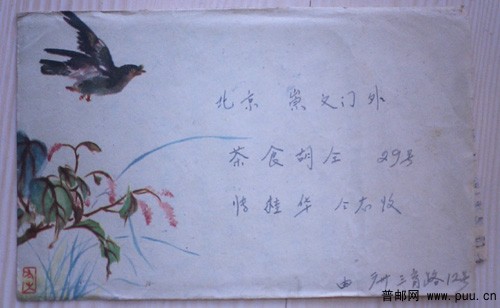 北京 崇文门外
茶食胡仝 29号
桂华 仝志收
由 三育路12号
普邮网 www.puu.cn